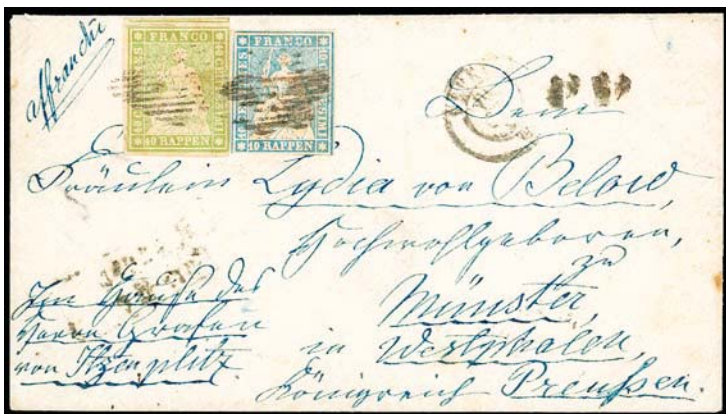 affranchi
FRANCO
40 RAPPEN
FRANCO
10 RAPPEN
PP
Dem
Fräulein Lydia von Below,
Hochwohlgeboren,
zu
Münster,
in Westphalen,
Königreich Preußen.
Im Hause des
Herrn Grafen
von Itzenplitz.